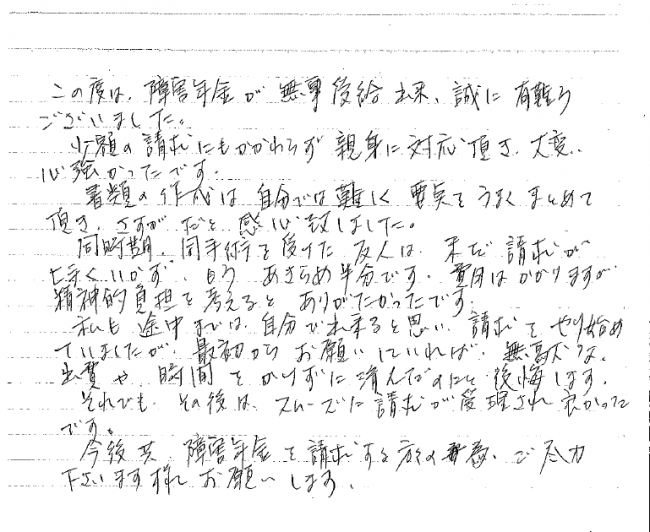 この度は、障害年金が無事受給出来、誠に有難う
ございました。
少額の請求にもかかわらず親身に対応頂き、大変、
心強かったです。
書類の作成は自分では難しく要点をうまくまとめて
頂き、さすがだと感心致しました。
同時期、同手術を受けた友人は、未だ請求が
上手くいかず、もう あきらめ半分です。費用はかかりますが
精神的負担を考えると ありがたかったです。
私も途中までは、自分で出来ると思い、請求をやり始め
ていましたが、最初からお願いしていれば、無駄な、
出費や 時間をかけずに済んだのにと後悔します。
それでも、その後は、スムーズに請求が受理され良かった
です。
今後共、障害年金を請求する方の為、ご尽力
下さいます様、お願いします。